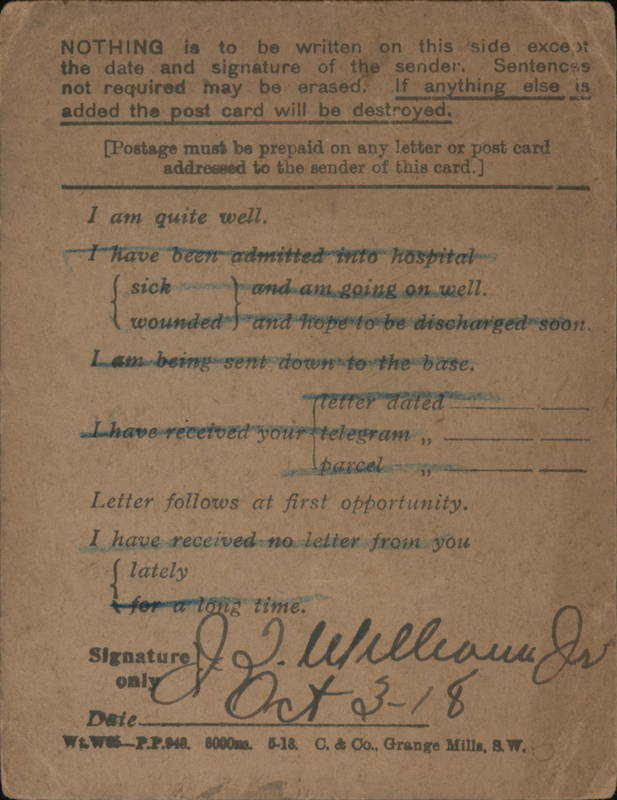 NOTHING is to be written on this side except
the date and signature of the sender. Sentences
not required may be erased. If anything else is
added the post card will be destroyed.
[Postage must be prepaid on any letter or post card
addressed to the sender of this card.]
I am quite well.
I have been admitted into hospital
{ sick } and am going on well.
{ wounded } and hope to be discharged soon.
I am being sent down to the base.
letter dated
I have received your { telegram „
parcel „
Letter follows at first opportunity.
I have received no letter from you
{ lately
for a long time.
Signature
only
J. Williams Jr
Oct 3-18
Date
Wt.W65—P.P.948. 8000m. 5-18. C. & Co., Grange Mills, S.W.